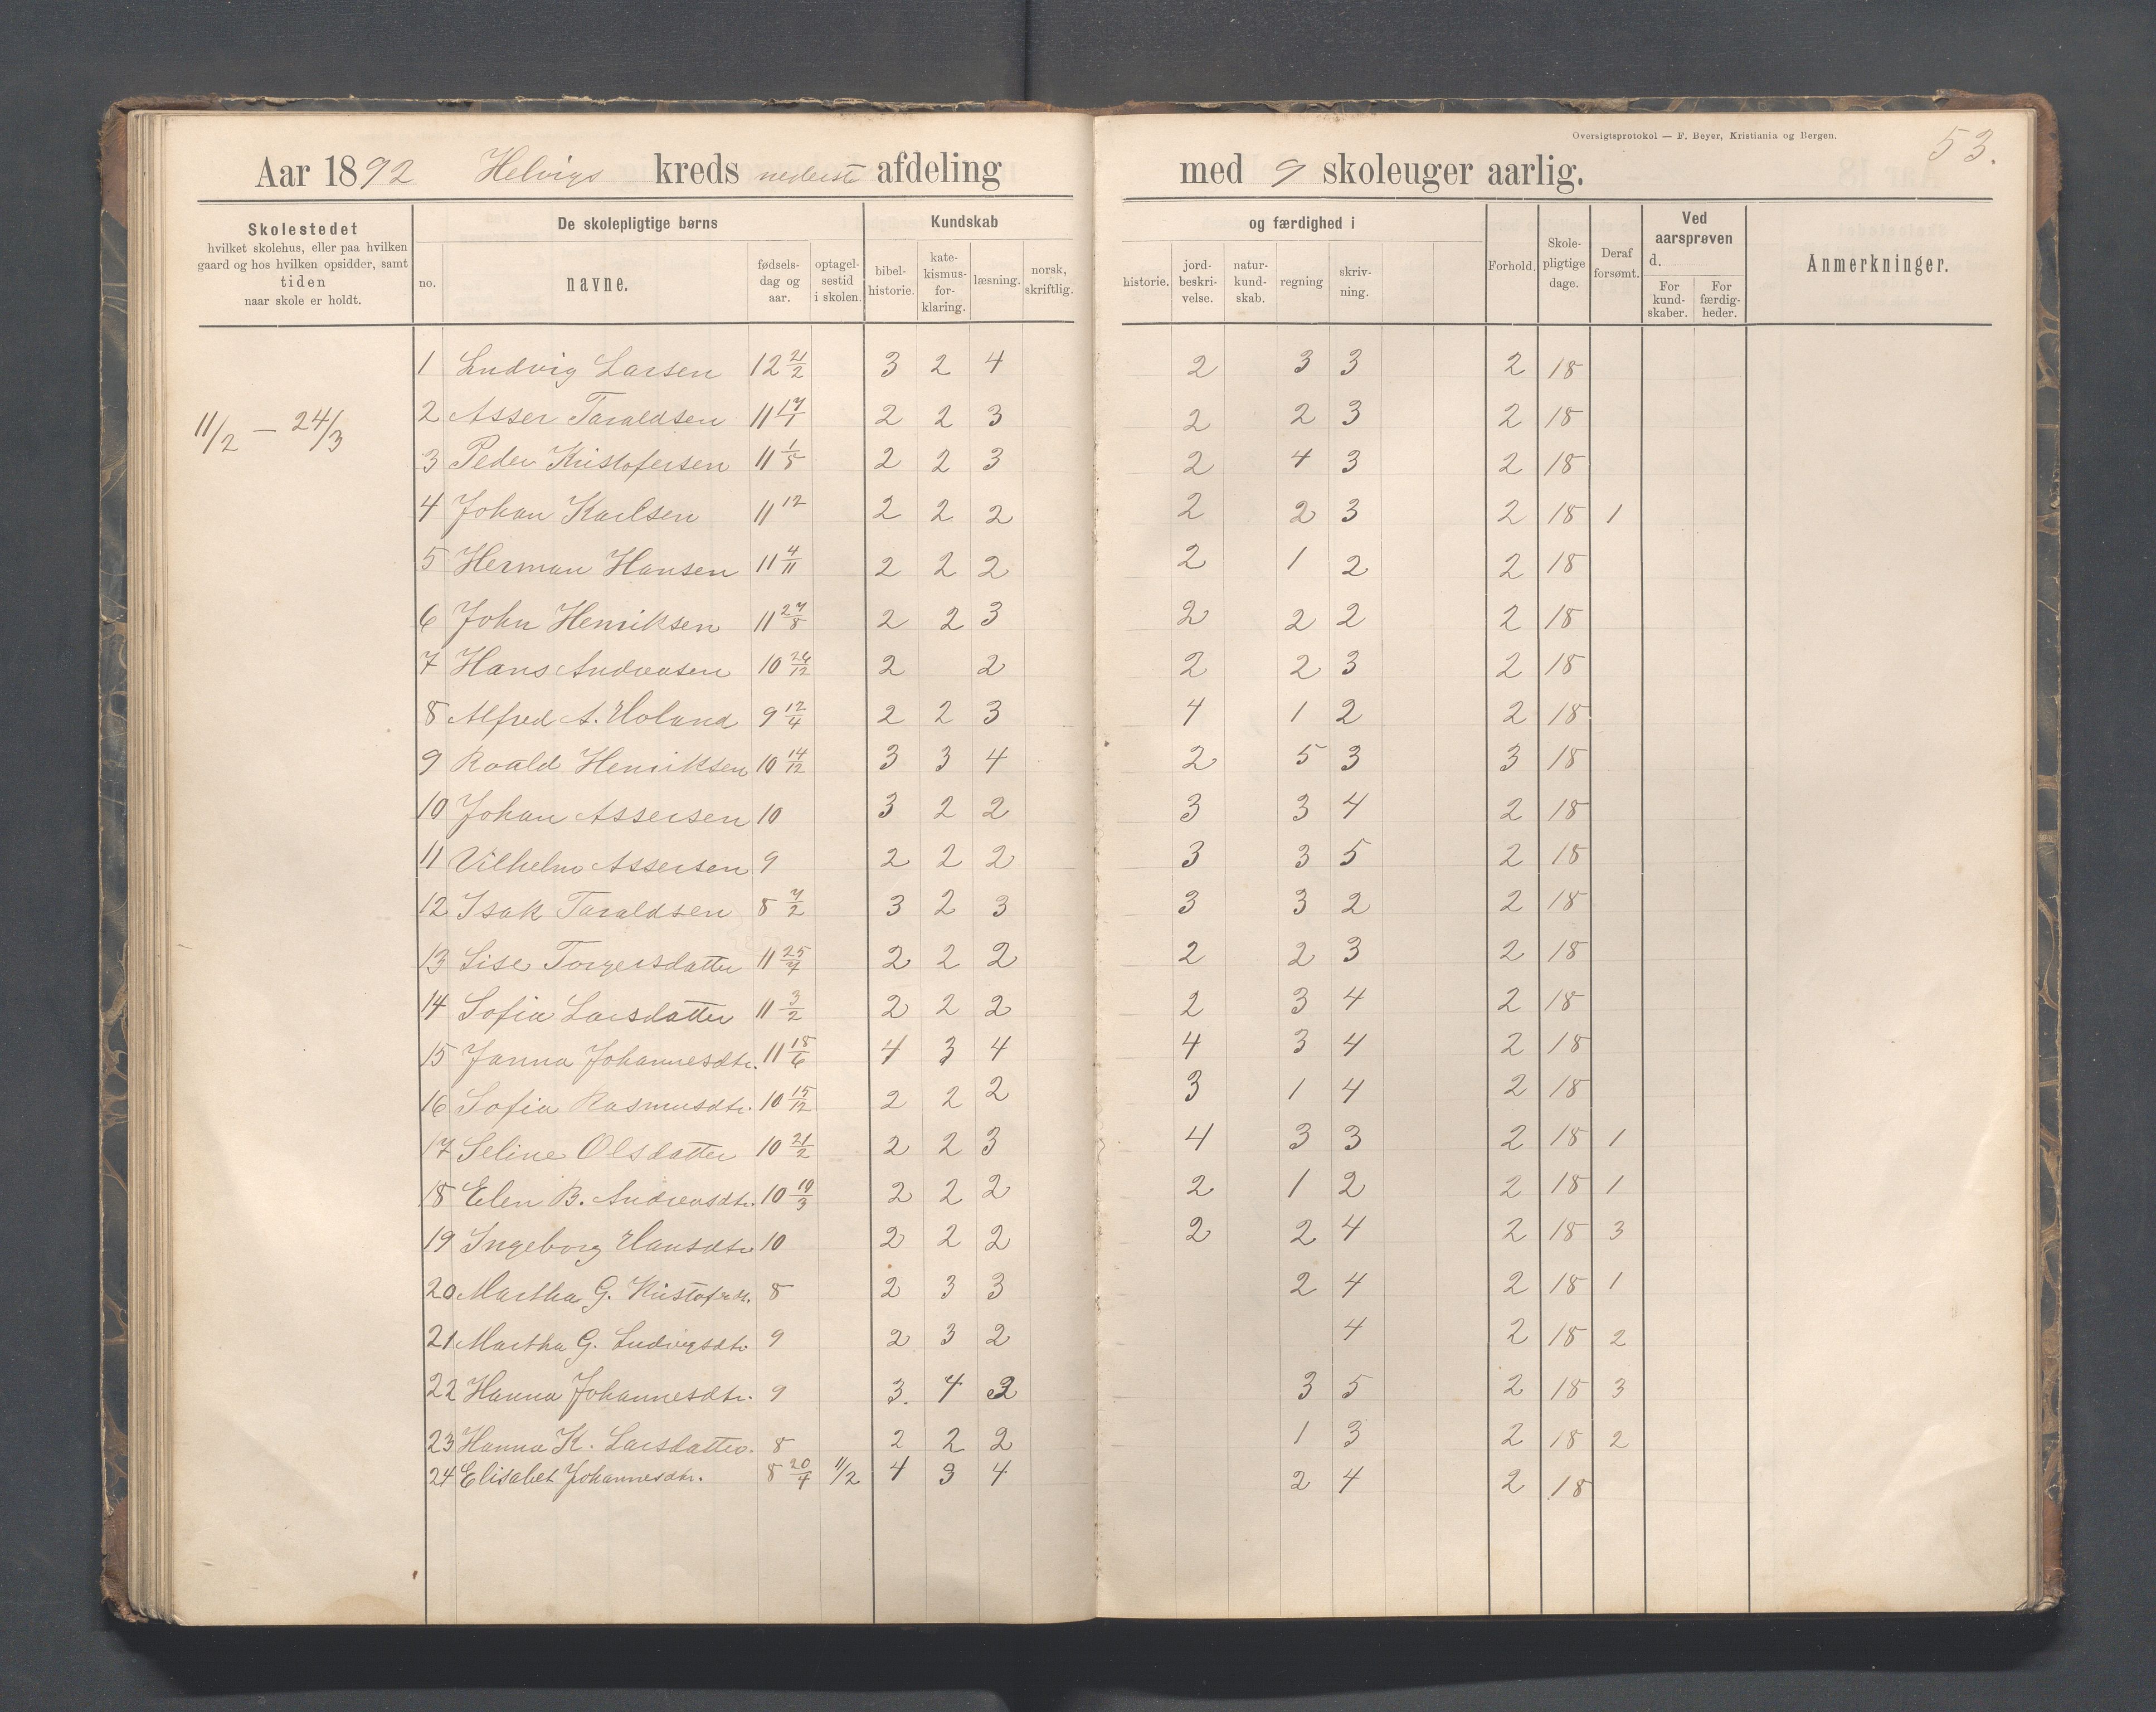 Oversigtsprotokol — F. Beyer, Kristiania og Bergen.
53.
Aar 1892 Helvigs kreds nederste afdeling med 9 skoleuger aarlig.
Skolestedet
hvilket skolehus, eller paa hvilken
gaard og hos hvilken opsidder, samt
tiden
naar skole er holdt.
De skolepligtige børns
no. navne. fødsels-dag og aar. optagel-sestid i skolen.
Kundskab og færdighed i
bibel-historie. kate-kismus-for-klaring. læsning. norsk, skriftlig. historie. jord-beskri-velse. natur-kund-skab. regning skriv-ning.
Forhold. Skole-pligtige dage. Deraf forsømt.
Ved aarsprøven d.
For kund-skaber. For færdig-heder.
Anmerkninger.
11/2 — 24/3
1 Ludvig Larsen 12 21/2 3 2 4 2 3 3 2 18
2 Asser Taraldsen 11 17/1 2 2 3 2 2 3 2 18
3 Peder Kristofersen 11 1/8 2 2 3 2 4 3 2 18
4 Johan Karlsen 11 12 2 2 2 2 2 3 2 18 1
5 Herman Hansen 11 4/11 2 2 2 2 1 2 2 18
6 John Henriksen 11 27/8 2 2 3 2 2 2 2 18
7 Hans Andreasen 10 26/12 2 2 2 2 3 2 18
8 Alfred A. Holand 9 12/4 2 2 3 4 1 2 2 18
9 Roald Henriksen 10 14/12 3 3 4 2 5 3 3 18
10 Johan Assersen 10 3 2 2 3 3 4 2 18
11 Vilhelm Assersen 9 2 2 2 3 3 5 2 18
12 Isak Taraldsen 8 7/2 3 2 3 3 3 2 2 18
13 Lise Torgersdatter 11 25/4 2 2 2 2 2 3 2 18
14 Sofia Larsdatter 11 3/2 2 2 2 2 3 4 2 18
15 Janna Johannesdtr. 11 18/6 4 3 4 4 3 4 2 18
16 Sofia Rasmusdtr. 10 15/12 2 2 2 3 1 4 2 18
17 Seline Olsdatter 10 21/2 2 2 3 4 3 3 2 18 1
18 Elen B. Andreasdtr. 10 19/3 2 2 2 2 1 2 2 18 1
19 Ingeborg Hansdtr 10 2 2 2 2 2 4 2 18 3
20 Martha G. Kristofersdt. 8 2 3 3 2 4 2 18 1
21 Martha G. Ludvigsdtr 9 2 3 2 4 2 18 2
22 Hanna Johannesdtr. 9 3. 4 2 3 5 2 18 3
23 Hanna K. Larsdatter. 8 2 2 2 1 3 2 18 2
24 Elisabet Johannesdtr. 8 20/4 11/2 4 3 4 2 4 2 18